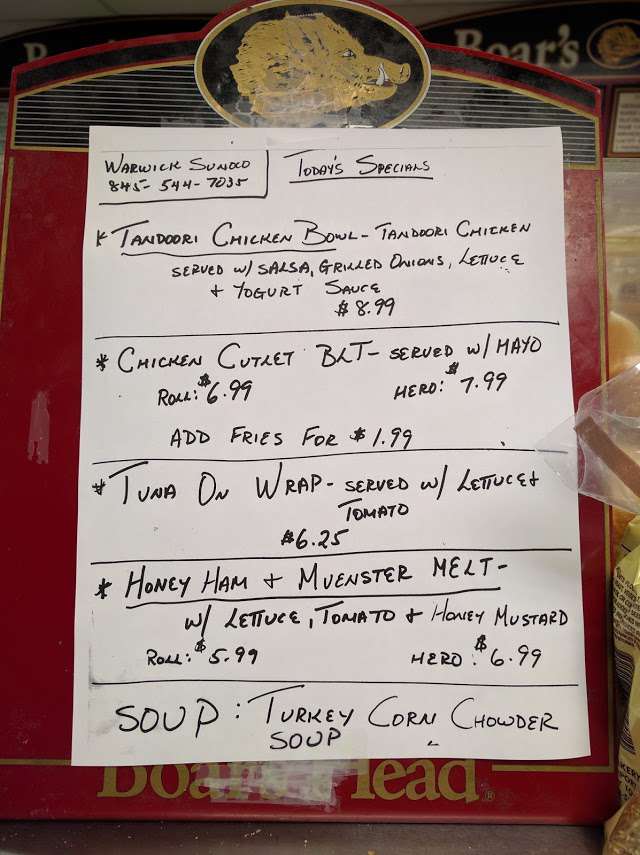 Boar's
WARWICK SUNOCO
845-544-7035
TODAY'S SPECIALS
* TANDOORI CHICKEN BOWL - TANDOORI CHICKEN
SERVED W/ SALSA, GRILLED ONIONS, LETTUCE
+ YOGURT SAUCE
$8.99
* CHICKEN CUTLET BLT - SERVED W/ MAYO
ROLL: $6.99 HERO: $7.99
ADD FRIES FOR $1.99
* TUNA ON WRAP - SERVED W/ LETTUCE +
TOMATO
$6.25
* HONEY HAM + MUENSTER MELT -
W/ LETTUCE, TOMATO + HONEY MUSTARD
ROLL: $5.99 HERO: $6.99
SOUP: TURKEY CORN CHOWDER
SOUP
Boar's Head®